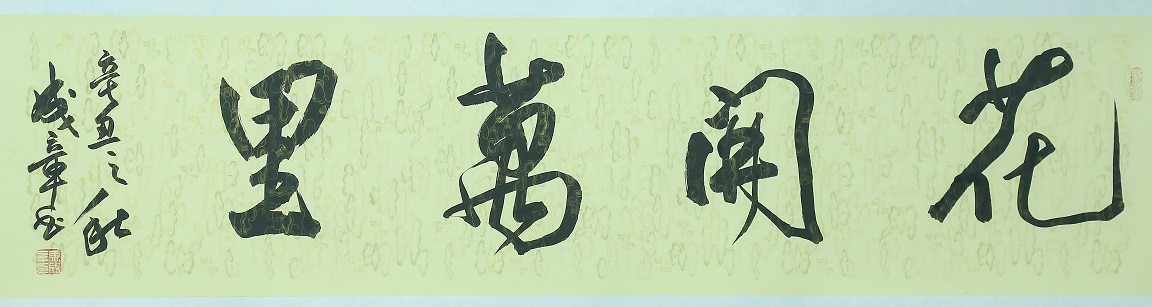 花開萬里
辛丑之秋
成章书